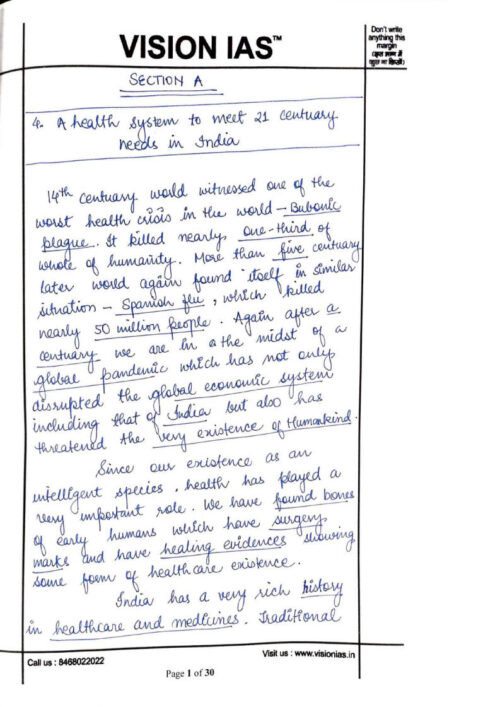 VISION IAS™
Don't write
anything this
margin
SECTION A
4. A health system to meet 21 centuary
needs in India
14th centuary world witnessed one of the
worst health crisis in the world – Bubonic
plague. It killed nearly one-third of
whole of humanity. More than five centuary
later world again found itself in similar
situation – Spanish flu, which killed
nearly 50 million people. Again after a
centuary we are in a the midst of a
global pandemic which has not only
disrupted the global economic system
including that of India but also has
threatened the very existence of Humankind.
Since our existence as an
intelligent species, health has played a
very important role. We have found bones
of early humans which have surgery
marks and have healing evidences showing
some form of healthcare existence.
India has a very rich history
in healthcare and medicines. Traditional
Call us : 8468022022
Visit us : www.visionias.in
Page 1 of 30